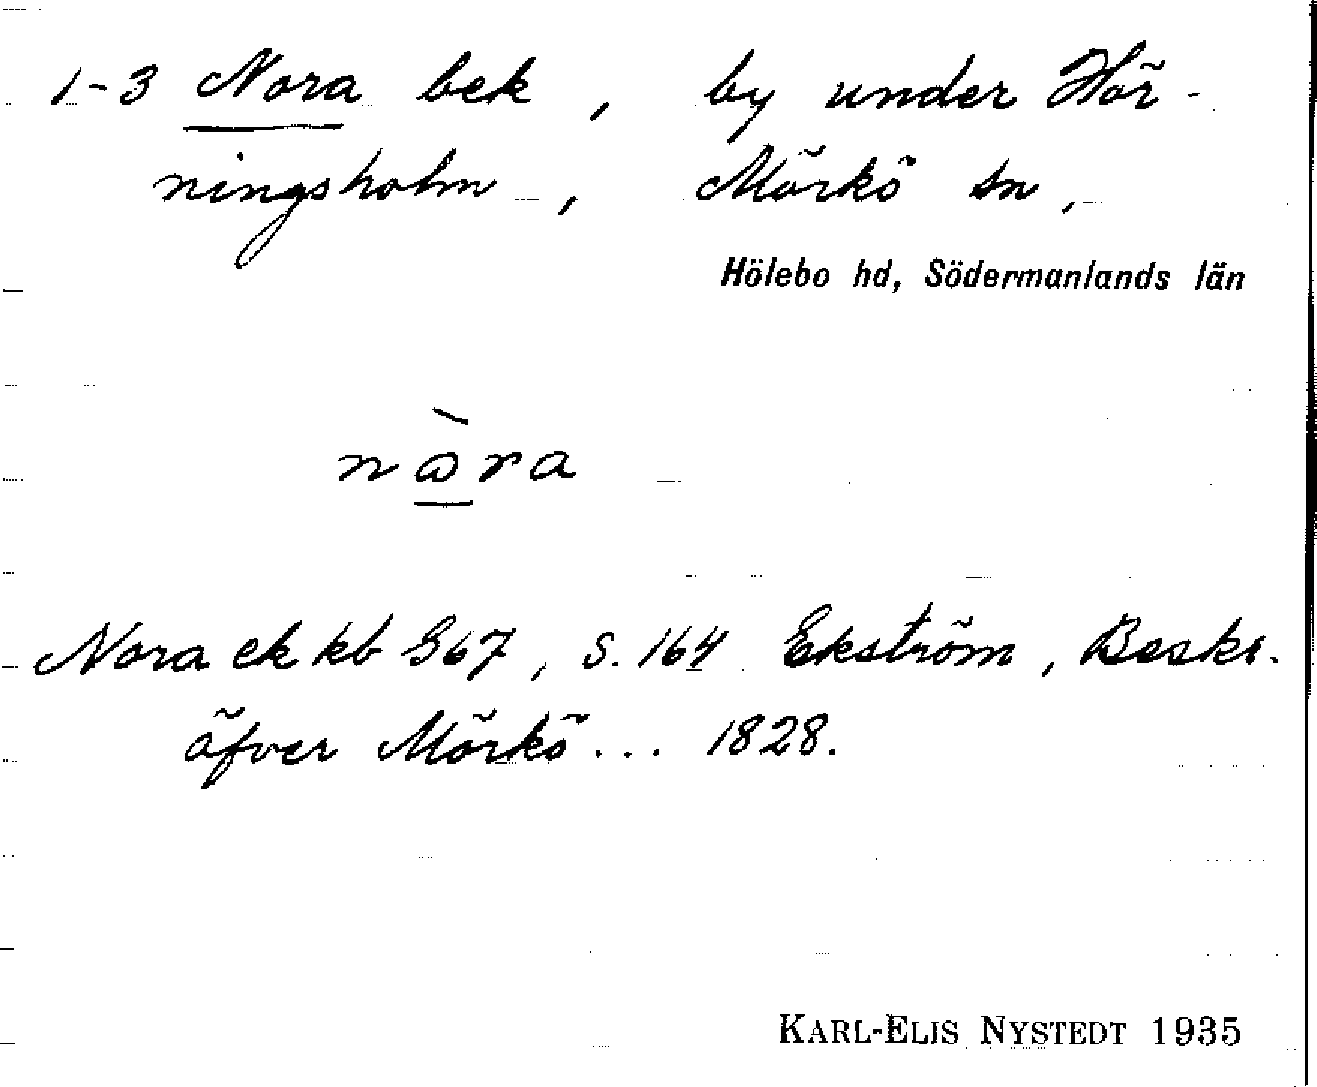 1-3 Nora bek, by under Hör-
ningsholm, Mörkö sn,
Hölebo hd, Södermanlands län
nὼra
Nora ek kb G67, S. 164 Ekström, Beskr.
öfver Mörkö... 1828.
KARL-ELIS NYSTEDT 1935